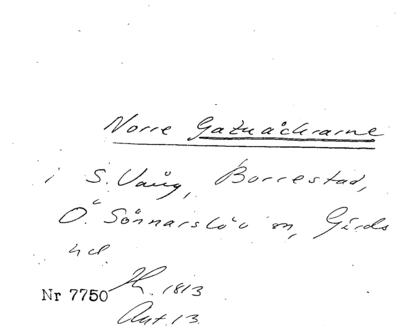 Norre Gatuåkrarne
i S. Vång, Borrestad,
Ö. Sönnarslöv sn, Gärds
hd.
Nr 7750 H. 1813
Ant. 13.